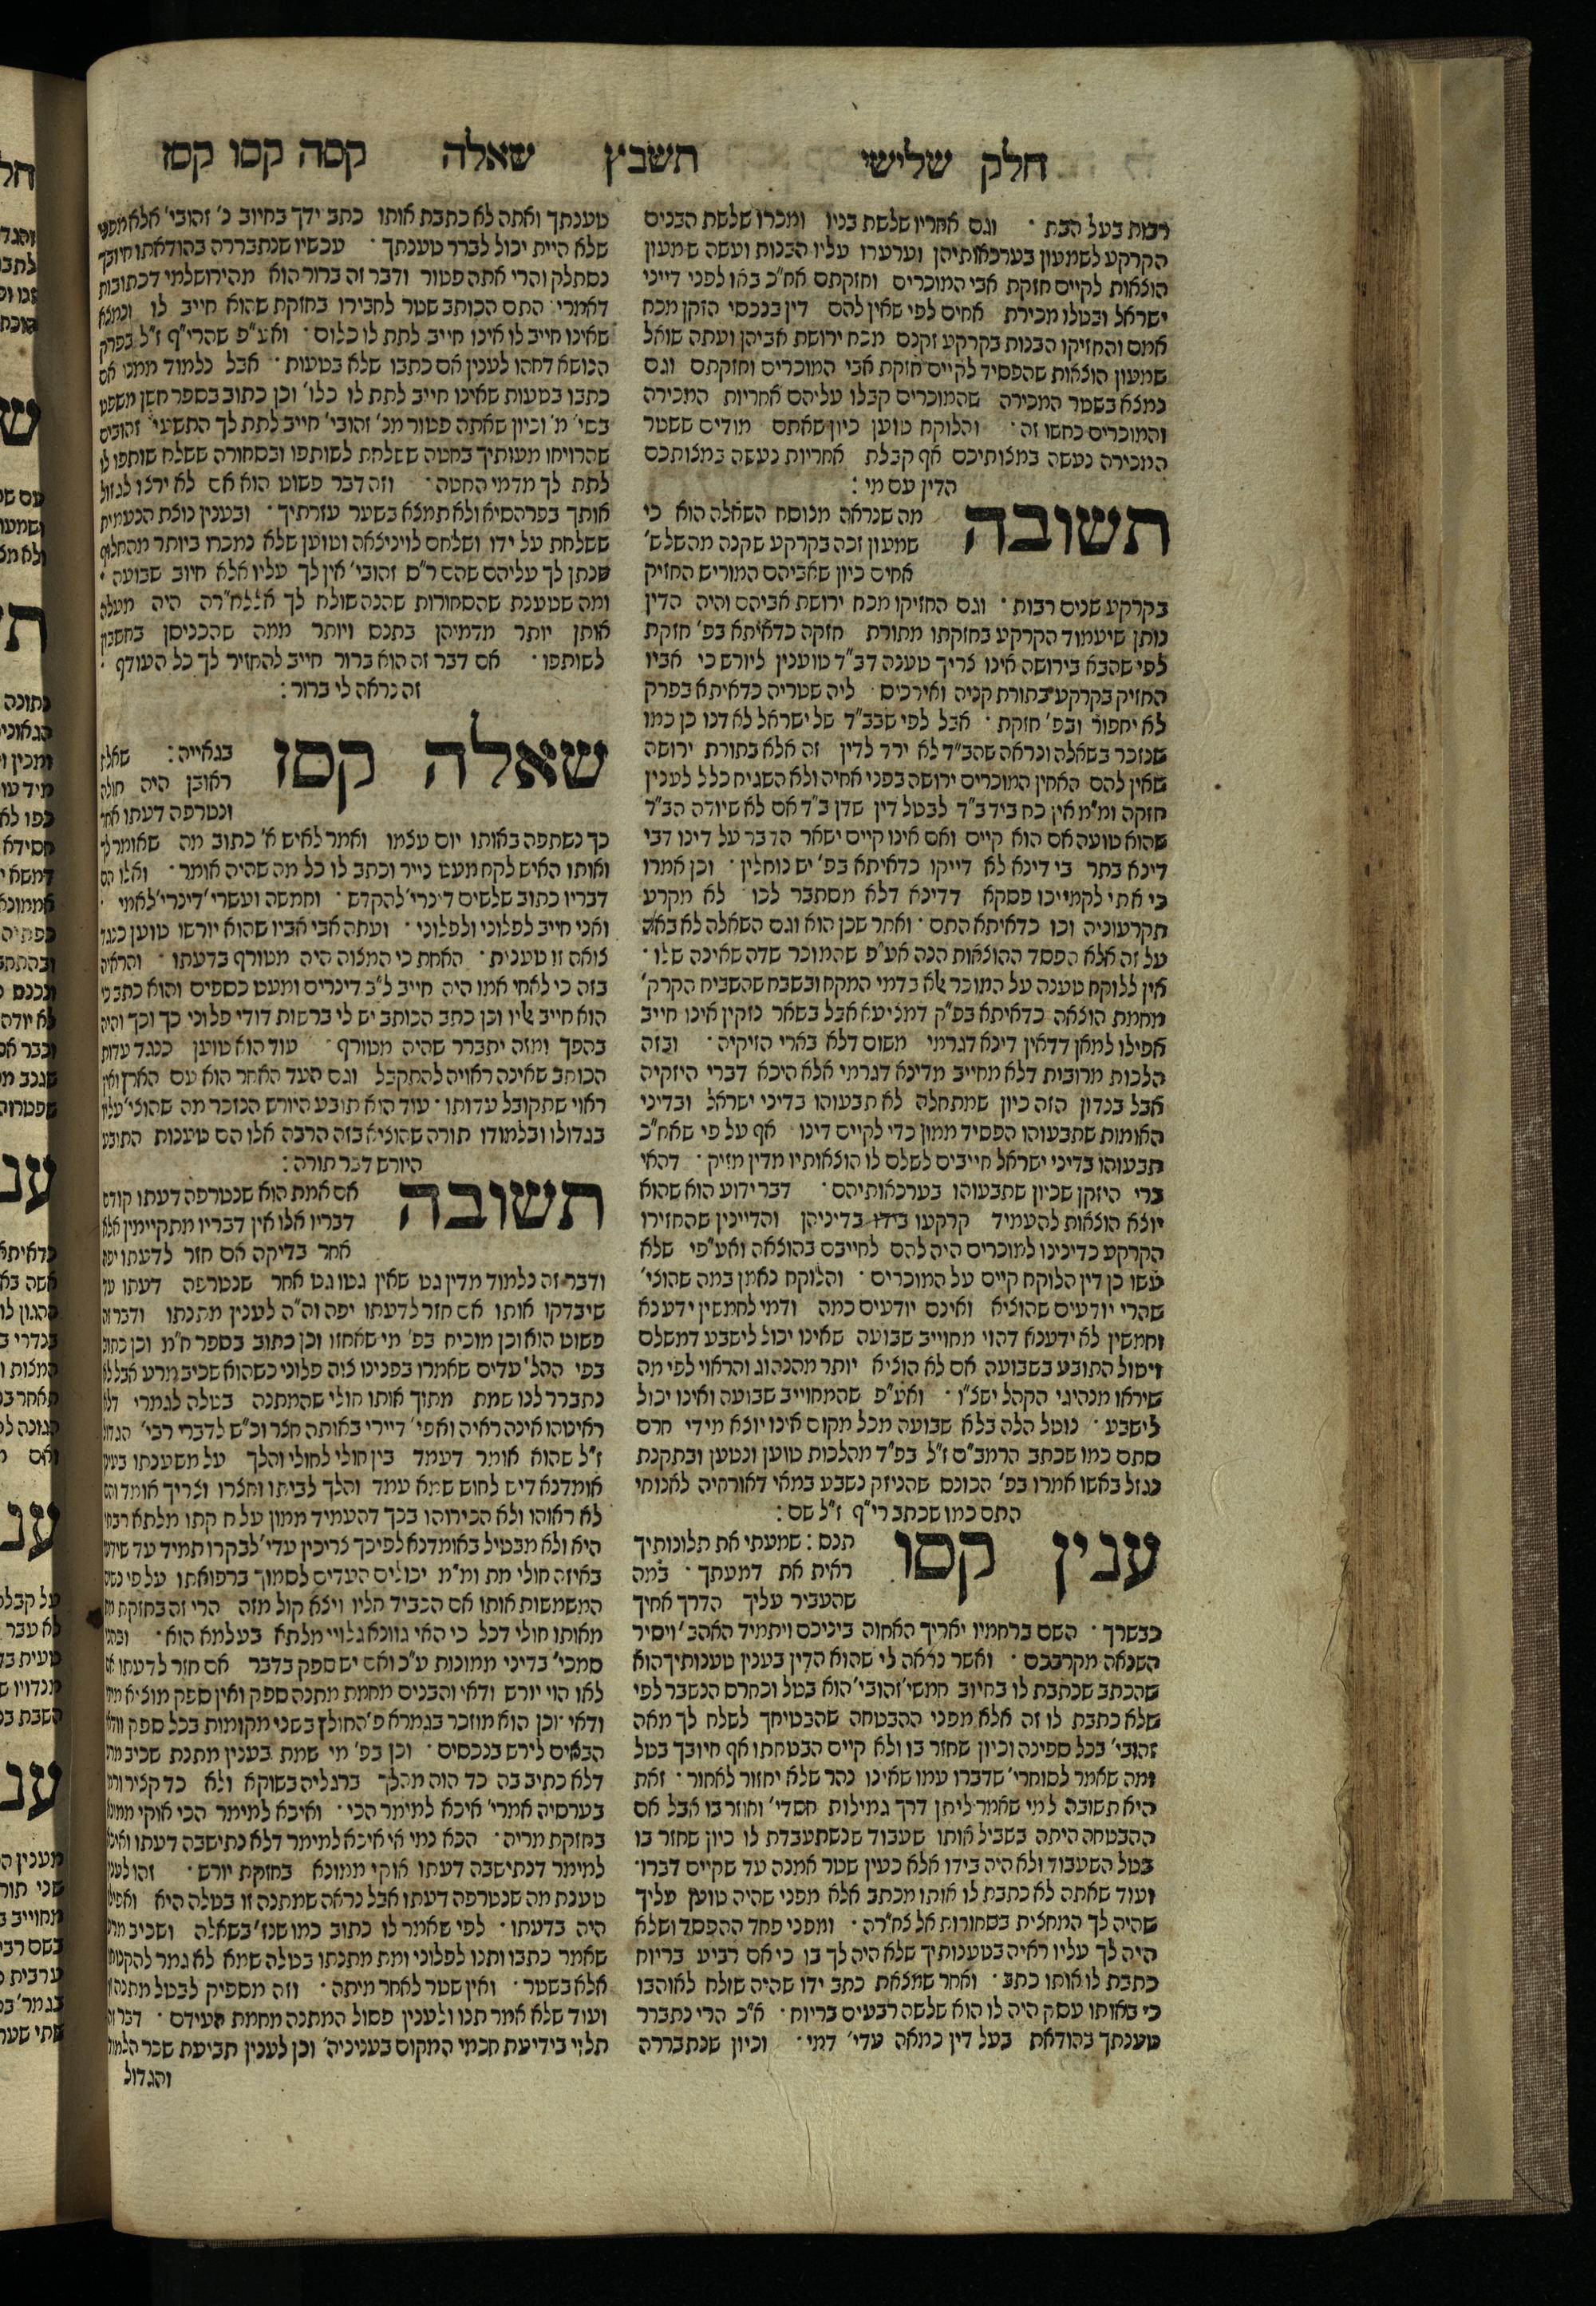 חלק שלישי תשבץ שאלה קסה קסו קסז
רבות בעל הבת · וגם אחריו שלשת בניו ומכרו שלשת הבנים
הקרקע לשמעון בערכאותיהן וערערו עליו הבנות ועשה שמעון
הוצאות לקיים חזקת אבי המוכרים וחזקתם אח"כ באו לפני דייני
ישראל ובטלו מכירת אחים לפי שאין להם דין בנכסי הזקן מכח
אמם והחזיקו הבנות בקרקע זקנם מכח ירושת אביהן ועתה שואל
שמעון הוצאות שהפסיד לקיים חזקת אבי המוכרים וחזקתם וגם
נמצא בשטר המכירה שהמוכרים קבלו עליהם אחריות המכירה
והמוכרים כחשו זה · והלוקח טוען כיון שאתם מודים ששטר
המכירה נעשה במצותיכם אף קבלת אחריות נעשה במצותכם
הדין עם מי :
תשובה מה שנראה מנוסח השאלה הוא כי
שמעון זכה בקרקע שקנה מהשלש'
אחים כיון שאביהם המוריש החזיק
בקרקע שנים רבות · וגם החזיקו מכח ירושת אביהם והיה הדין
נותן שיעמוד הקרקע בחזקתו מתורת חזקה כדאיתא בפ' חזקת
לפי שהבא בירושה אינו צריך טענה דב"ד טוענין ליורש כי אביו
החזיק בקרקע בתורת קניה ואירכיס ליה שטריה כדאיתא בפרק
לא יחפור ובפ' חזקת · אבל לפי שבב"ד של ישראל לא דנו כן כמו
שנזכר בשאלה ונראה שהב"ד לא ירד לדין זה אלא בתורת ירושה
שאין להם האחין המוכרים ירושה בפני אחיה ולא השגיח כלל לענין
חזקה ומ"מ אין כח ביד ב"ד לבטל דין שדן ב"ד אם לא שיודה הב"ד
שהוא טועה אם הוא קיים ואם אינו קיים ישאר הדבר על דינו דבי
דינא בתר בי דינא לא דייקו כדאיתא בפ' יש נוחלין · וכן אמרו
כי אתי לקמייכו פסקא דדינא דלא מסתבר לכו לא מקרע
תקרעוניה וכו כדאיתא התם · ואחר שכן הוא וגם השאלה לא באה
על זה אלא הפסד ההוצאות הנה אע"פ שהמוכר שדה שאינה שלו ·
אין ללוקח טענה על המוכר אלא בדמי המקח ובשבח שהשביח הקרק'
מחמת הוצאה כדאיתא בפ"ק דמציעא אבל בשאר נזקין אינו חייב
אפילו למאן דדאין דינא דגרמי משום דלא בארי הזיקיה · ובזה
הלכות מרובות דלא מחייב מדינא דגרמי אלא היכא דברי היזקיה
אבל בנדון הזה כיון שמתחלה לא תבעוהו בדיני ישראל ובדיני
האומות שתבעוהו הפסיד ממון כדי לקיים דינו אף על פי שאח"כ
תבעוהו בדיני ישראל חייבים לשלם לו הוצאותיו מדין מזיק · דהאי
ברי היזקן שכיון שתבעוהו בערכאותיהם · דבר ידוע הוא שהוא
יוצא הוצאות להעמיד קרקעו בידו בדיניהן והדיינין שהחזירו
הקרקע כדינינו למוכרים היה להם לחייבם בהוצאה ואע"פי שלא
עשו כן דין הלוקח קיים על המוכרים · והלוקח נאמן במה שהוצי'
שהרי יודעים שהוציא ואינם יודעים כמה ודמי לחמשין ידענא
וחמשין לא ידענא דהוי מחוייב שבועה שאינו יכול לישבע דמשלם
ויטול התובע בשבועה אם לא הוציא יותר מהנהוג והראוי לפי מה
שיראו מנהיגי הקהל ישצ"ו · ואע"פ שהמחוייב שבועה ואינו יכול
לישבע · נוטל הלה בלא שבועה מכל מקום אינו יוצא מידי חרם
סתם כמו שכתב הרמב"ם ז"ל בפ"ד מהלכות טוען ונטען ובתקנת
נגזל באשו אמרו בפ' הכונס שהניזק נשבע במאי דאורחיה לאנוחי
התם כמו שכתב רי"ף ז"ל שם :
ענין קסו תנם : שמעתי את תלונותיך
ראית את דמעתך · במה
שהעביר עליך הדרך אחיך
כבשרך · השם ברחמיו יאריך האחוה ביניכם ויתמיד האהב' ויסיר
השנאה מקרבכם · ואשר נראה לי שהוא הדין בענין טענותיך הוא
שהכתב שכתבת לו בחיוב חמשי' זהובי' הוא בטל וכחרס הנשבר לפי
שלא כתבת לו זה אלא מפני ההבטחה שהבטיחך לשלח לך מאה
זהובי' בכל ספינה וכיון שחזר בו ולא קיים הבטחתו אף חיובך בטל
ומה שאמר לסוחרי' שדברו עמו שאינו נהר שלא יחזור לאחור · זאת
היא תשובה למי שאמר ליתן דרך גמילות חסדי' וחוזר בו אבל אם
ההבטחה היתה בשביל אותו שעבוד שנשתעבדת לו כיון שחזר בו
בטל השעבוד ולא היה בידו אלא כעין שטר אמנה עד שקיים דברו ·
ועוד שאתה לא כתבת לו אותו מכתב אלא מפני שהיה טוען עליך
שהיה לך המחצית בסחורות אל צח"רה · ומפני פחד ההפסד ושלא
היה לך עליו ראיה בטענותיך שלא היה לך בו כי אם רביע בריוח
כתבת לו אותו כתב · ואחר שמצאת כתב ידו שהיה שולח לאוהבו
כי באותו עסק היה לו הוא שלשה רבעים בריוח · א"כ הרי נתברר
טענתך בהודאת בעל דין כמאה עדי' דמי · וכיון שנתבררה
טענתך ואתה לא כתבת אותו כתב ידך בחיוב נ' זהובי' אלא מפני
שלא היית יכול לברר טענתך · עכשיו שנתבררה בהודאתו חיובך
נסתלק והרי אתה פטור ודבר זה ברור הוא מהירושלמי דכתובות
דאמרי' התם הכותב שטר לחבירו בחזקת שהוא חייב לו ונמצא
שאינו חייב לו אינו חייב לתת לו כלום · ואע"פ שהרי"ף ז"ל בפרק
הנושא דחהו לענין אם כתבו שלא בטעות · אבל נלמוד ממנו אם
כתבו בטעות שאינו חייב לתת לו כלו' וכן כתוב בספר חשן משפט
בסי' מ' וכיון שאתה פטור מנ' זהובי' חייב לתת לך התשעי' זהובים
שהרויחו מעותיך בחטה ששלחת לשותפו ובסחורה ששלח שותפו לו
לתת לך מדמי החטה · וזה דבר פשוט הוא אם לא ירצו לגזול
אותך בפרהסיא ולא תמצא בשער עזרתיך · ובענין נוצת הנעמית
ששלחת על ידו ושלחם לויניציאה וטוען שלא נמכרו ביותר מהחלוף
שנתן לך עליהם שהם ר"ם זהובי' אין לך עליו אלא חיוב שבועה ·
ומה שטענת שהסחורות שהנה שולח לך אללח"רה היה מעלה
אותן יותר מדמיהן בתנם ויותר ממה שהכניסן בחשבון
לשותפו · אם דבר זה הוא ברור חייב להחזיר לך כל העודף :
זה נראה לי ברור :
שאלה קסז בגאייה : שאלת
ראובן היה חולה
ונטרפה דעתו אחר
כך נשתפה באותו יום עצמו ואמר לאיש א' כתוב מה שאומר לך
ואותו האיש לקח מעט נייר וכתב לו כל מה שהיה אומר · ואלו הם
דבריו כתוב שלשים דינרי' להקדש · וחמשה ועשרי' דינרי' לאמי ·
ואני חייב לפלוני ולפלוני · ועתה אבי אביו שהוא יורשו טוען כנגד
צואה זו טענות · האחת כי המצוה היה מטורף בדעתו · והראיה
בזה כי לאחי אמו היה חייב ל"ב דינרים ומעט כספים והוא כתב כי
הוא חייב אליו וכן כתב הכותב יש לי ברשות דודי פלוני כך וכך והיה
בהפך ומזה יתברר שהיה מטורף · עוד הוא טוען כנגד עדות
הכותב שאינה ראויה להתקבל וגם העד האחר הוא עם הארץ ואין
ראוי שתקובל עדותו · עוד הוא תובע היורש הנזכר מה שהוצי' עליו
בגדולו ובלמודו תורה שהוציא בזה הרבה אלו הם טענות התובע
היורש דבר תורה :
תשובה אם אמת הוא שנטרפה דעתו קודם
דבריו אלו אין דבריו מתקיימין אלא
אחר בדיקה אם חזר לדעתו יפה
ודבר זה נלמוד מדין גט שאין גטו גט אחר שנטרפה דעתו עד
שיבדקו אותו אם חזר לדעתו יפה וה"ה לענין מתנתו ודבר זה
פשוט הוא וכן מוכיח בפ' מי שאחזו וכן כתוב בספר ח"מ וכן כתוב
בפי ההל' עדים שאמרו בפנינו צוה פלוני כשהוא שכיב מרע אבל לא
נתברר לנו שמת מתוך אותו חולי שהמתנה בטלה לגמרי דלא
ראיטהו אינה ראיה ואפי' דיירי באותה חצר וכ"ש לדברי רבי' הגדול
ז"ל שהוא אומר דעמד בין חולי לחולי והלך על משענתו בעינן
אומדנא דיש לחוש שמא עמד והלך לביתו וחצרו וצריך אומד והם
לא ראוהו ולא הכירוהו בכך דהעמיד ממון על ח קתו מלתא רבתי
היא ולא מבטיל באומדנא לפיכך צריכין עדי' לבקרו תמיד עד שידעו
באיזה חולי מת ומ"מ יכולים העדים לסמוך ברפואתו על פי נשים
המשמשות אותו אם הכביד חליו ויצא קול מזה הרי זה בחזקת מת
מאותו חולי דכל כי האי גוונא גלויי מלתא בעלמא הוא ·
סמכי' בדיני ממונות ע"כ ואם יש ספק בדבר אם חזר לדעתו או
לאו הוי יורש ודאי והבנים מחמת מתנה ספק ואין ספק מוציא מידי
ודאי · וכן הוא מוזכר בגמרא פ' החולץ בשני מקומות בכל ספק וודאי
הבאים לירש בנכסים · וכן בפ' מי שמת בענין מתנת שכיב מרע
דלא כתיב בה כד הוה מהלך ברגליה בשוקא ולא כד קציר ורמי
בערסיה אמרי' איכא למימר הכי · ואיכא למימר הכי אוקי ממונא
בחזקת מריה · הכא נמי אי איכא למימר דלא נתישבה דעתו ואיכא
למימר דנתישבה דעתו אוקי ממונא בחזקת יורש · זהו לענין
טענת מה שנטרפה דעתו אבל נראה שמתנה זו בטלה היא ואפילו
היה בדעתו · לפי שאמר לו כתוב כמו שנז' בשאלה ושכיב מרע
שאמר כתבו ותנו לפלוני ומת מתנתו בטלה שמא לא גמר להקנותו
אלא בשטר · ואין שטר לאחר מיתה · וזה מספיק לבטל מתנה זו
ועוד שלא אמר תנו ולענין פסול המתנה מחמת העידם · דבר זה
תלוי בידיעת חכמי המקום בעניניה' וכן לענין תביעת שכר הלמוד
והגדול